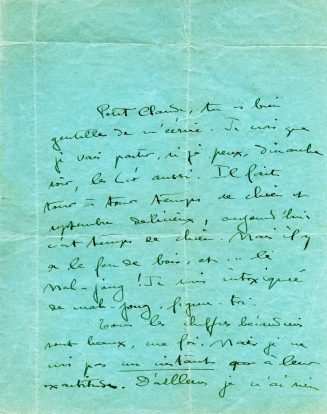 Petit Claude, tu es bien
gentille de m'écrire. Je crois que
je vais partir, si je peux, dimanche
soir, le Ció aussi. Il fait
tour à tour temps de chien et
septembre délicieux, aujourd'hui
c'est temps de chien. Mais il y
a le feu de bois, et ... le
Mah-jong ! Je suis intoxiquée
de mah-jong, figure-toi.
Tous les chiffres
sont beaux, ma foi. Mais je ne
crois pas un instant à leur
exactitude. D'ailleurs je n'ai rien